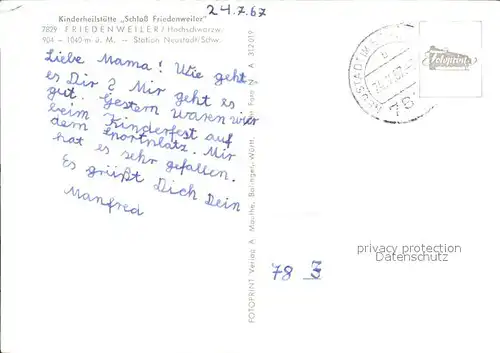 24.7.67
Kinderheilstätte „Schloß Friedenweiler"
7829 FRIEDENWEILER / Hochschwarzw.
904 – 1040 m ü. M. – Station Neustadt/Schw.
Liebe Mama! Wie geht
es Dir? Mir geht es
gut. Gestern waren wir
beim Kinderfest auf
dem Sportplatz. Mir
hat es sehr gefallen.
Es grüßt Dich Dein
Manfred
FOTOPRINT Verlag A. Mauthe, Balingen, Württ.
A 312 019
NEUSTADT
78
Fotoprint
privacy protection
Datenschutz
78 3